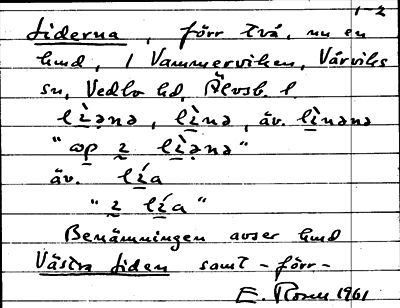 1-2
Liderna, förr två, nu en
hmd, i Vammerviken, Värviks
sn, Vedbo hd, Älvsb. l.
lìəna, lìna, äv. lìnəna
"op i lìəna"
äv. lía
"i lía"
Benämningen avser hmd
Västra Liden samt - förr -
E. Rosen 1961